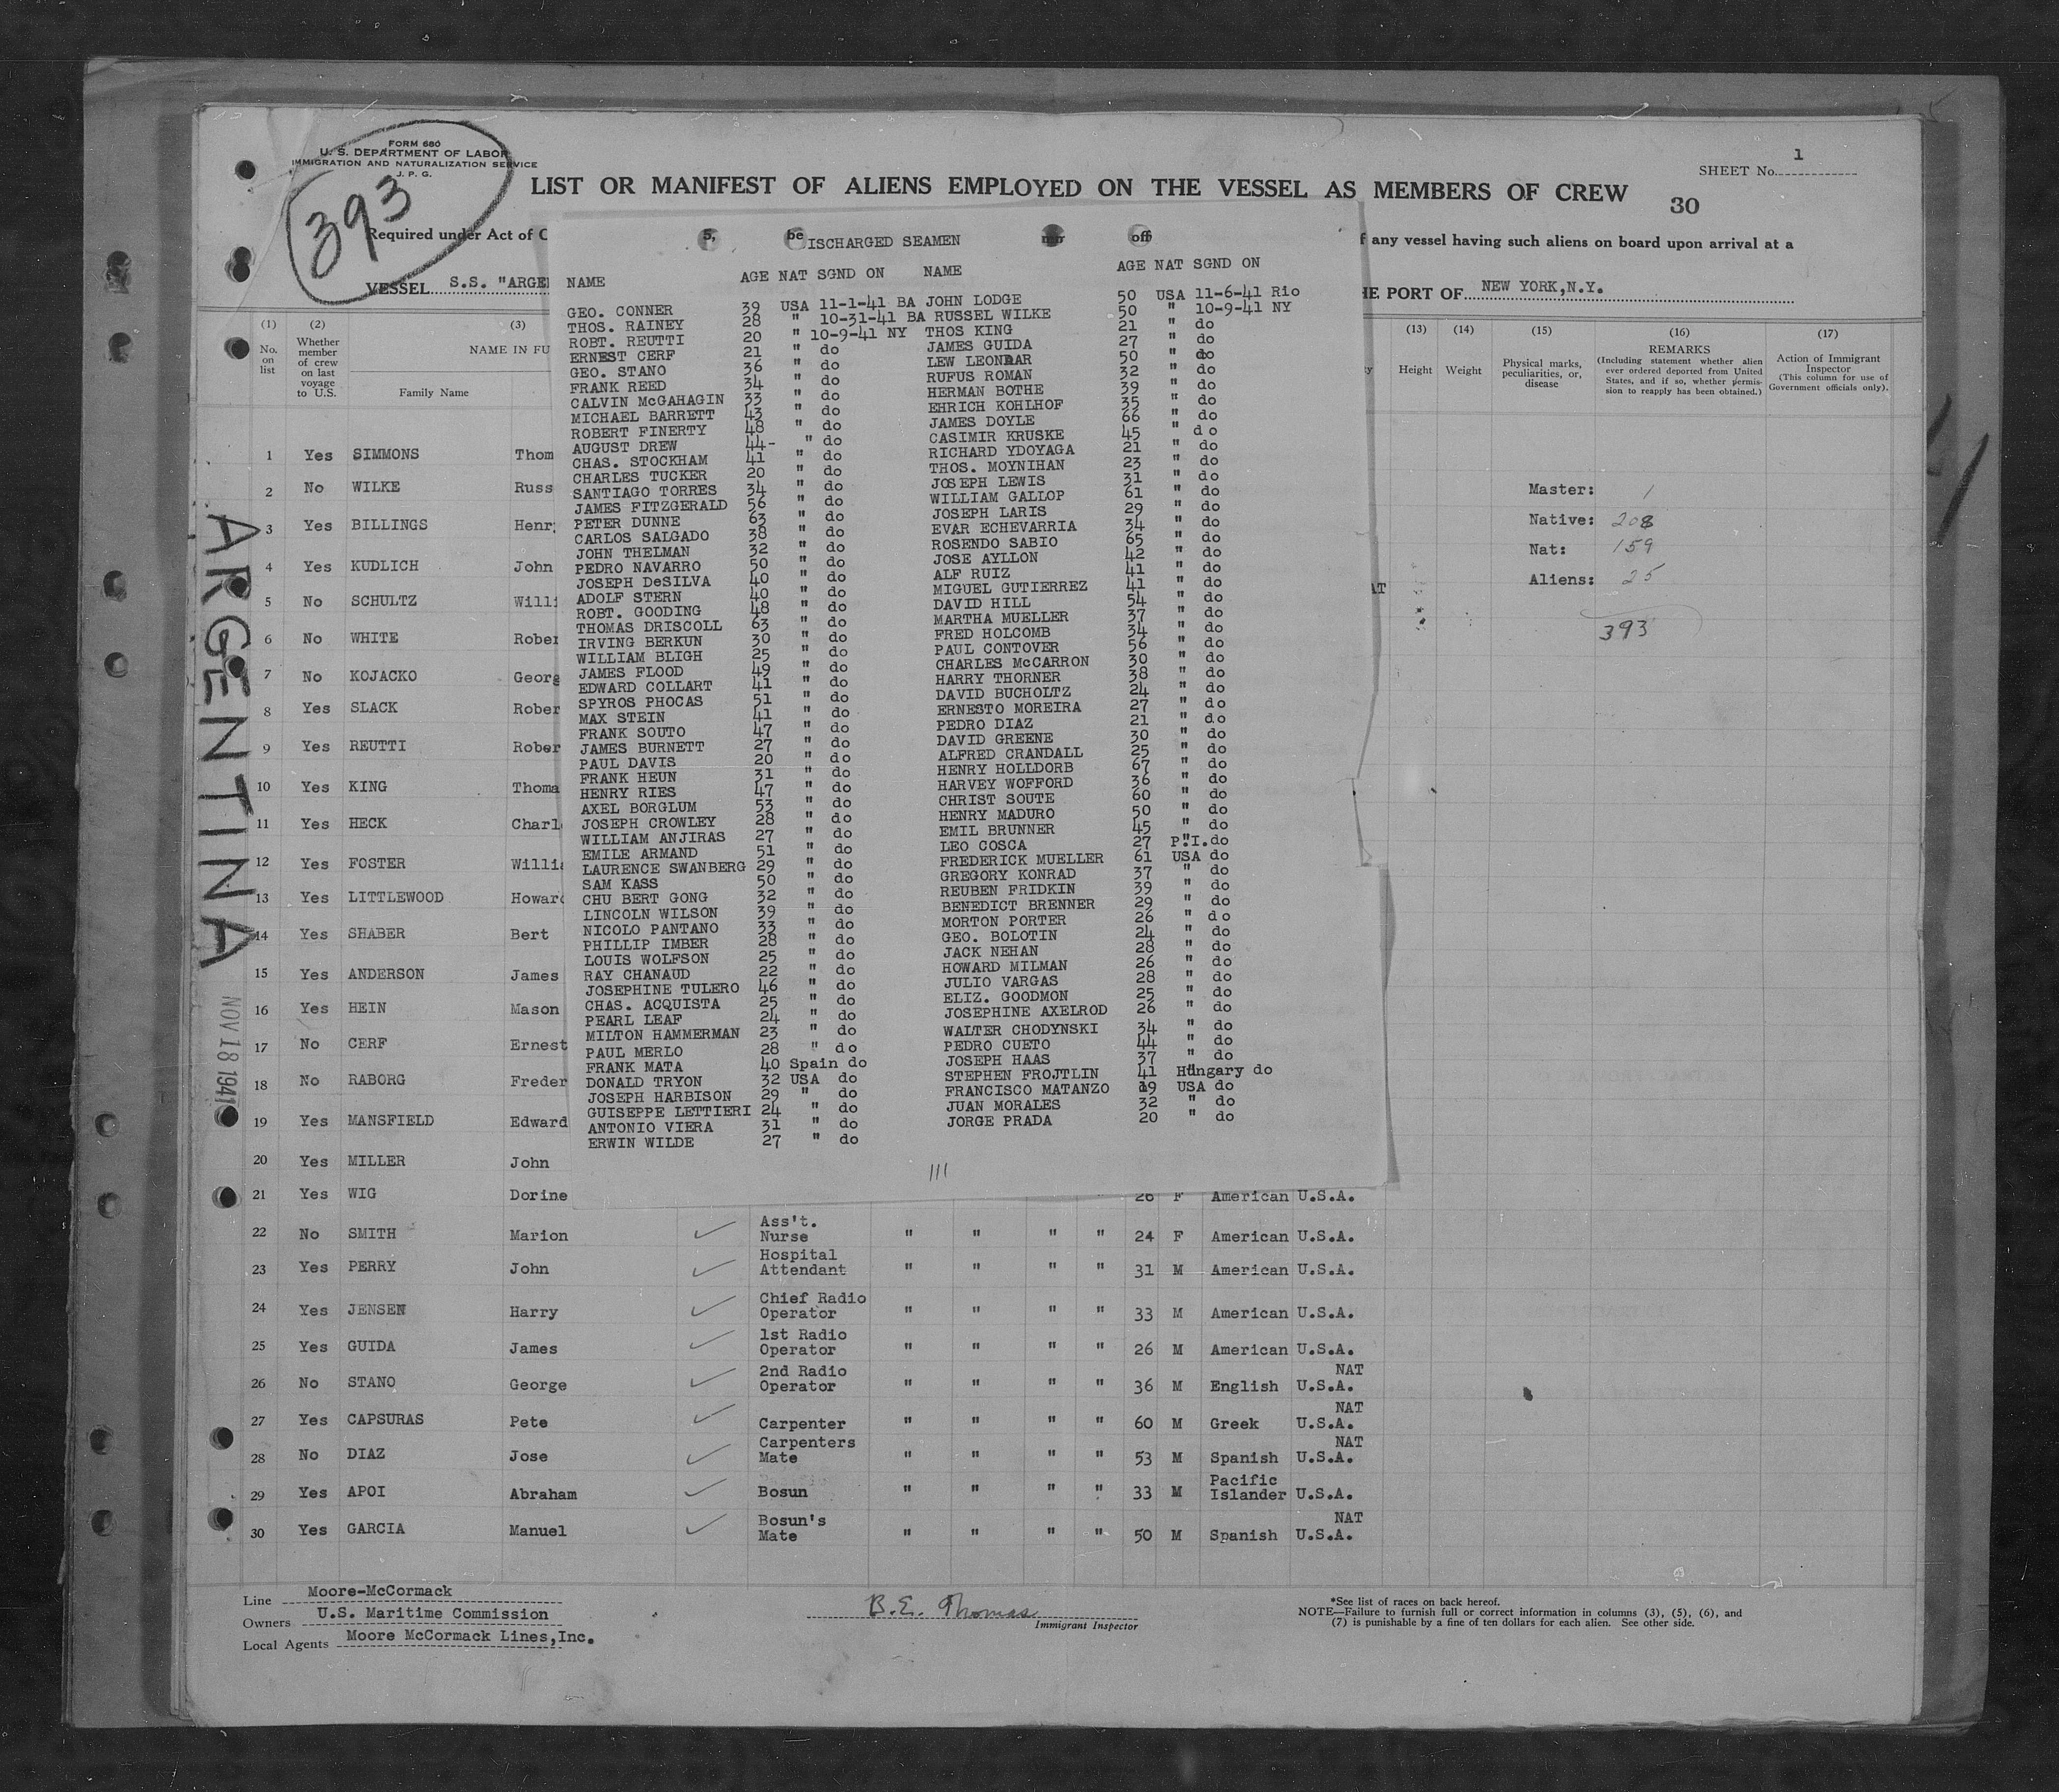 FORM 680
U. S. DEPARTMENT OF LABOR
IMMIGRATION AND NATURALIZATION SERVICE
J. P. G.
393
SHEET No. 1
LIST OR MANIFEST OF ALIENS EMPLOYED ON THE VESSEL AS MEMBERS OF CREW
30
Required under Act of C
f any vessel having such aliens on board upon arrival at a
VESSEL S.S. "ARGE
HE PORT OF NEW YORK,N.Y.
5, be off
ISCHARGED SEAMEN
NAME AGE NAT SGND ON NAME AGE NAT SGND ON
GEO. CONNER 39 USA 11-1-41 BA JOHN LODGE 50 USA 11-6-41 Rio
THOS. RAINEY 28 " 10-31-41 BA RUSSEL WILKE 50 " 10-9-41 NY
ROBT. REUTTI 20 " 10-9-41 NY THOS KING 21 " do
ERNEST CERF 21 " do JAMES GUIDA 27 " do
GEO. STANO 36 " do LEW LEONDAR 50 " do
FRANK REED 34 " do RUFUS ROMAN 32 " do
CALVIN McGAHAGIN 33 " do HERMAN BOTHE 39 " do
MICHAEL BARRETT 43 " do EHRICH KOHLHOF 35 " do
ROBERT FINERTY 48 " do JAMES DOYLE 66 " do
AUGUST DREW 44- " do CASIMIR KRUSKE 45 " do
CHAS. STOCKHAM 41 " do RICHARD YDOYAGA 21 " do
CHARLES TUCKER 20 " do THOS. MOYNIHAN 23 " do
SANTIAGO TORRES 34 " do JOSEPH LEWIS 31 " do
JAMES FITZGERALD 56 " do WILLIAM GALLOP 61 " do
PETER DUNNE 63 " do JOSEPH LARIS 29 " do
CARLOS SALGADO 38 " do EVAR ECHEVARRIA 34 " do
JOHN THELMAN 32 " do ROSENDO SABIO 65 " do
PEDRO NAVARRO 50 " do JOSE AYLLON 42 " do
JOSEPH DeSILVA 40 " do ALF RUIZ 41 " do
ADOLF STERN 40 " do MIGUEL GUTIERREZ 41 " do
ROBT. GOODING 48 " do DAVID HILL 54 " do
THOMAS DRISCOLL 63 " do MARTHA MUELLER 37 " do
IRVING BERKUN 30 " do FRED HOLCOMB 34 " do
WILLIAM BLIGH 25 " do PAUL CONTOVER 56 " do
JAMES FLOOD 49 " do CHARLES McCARRON 30 " do
EDWARD COLLART 41 " do HARRY THORNER 38 " do
SPYROS PHOCAS 51 " do DAVID BUCHOLTZ 24 " do
MAX STEIN 41 " do ERNESTO MOREIRA 27 " do
FRANK SOUTO 47 " do PEDRO DIAZ 21 " do
JAMES BURNETT 27 " do DAVID GREENE 30 " do
PAUL DAVIS 20 " do ALFRED CRANDALL 25 " do
FRANK HEUN 31 " do HENRY HOLLDORB 67 " do
HENRY RIES 47 " do HARVEY WOFFORD 36 " do
AXEL BORGLUM 53 " do CHRIST SOUTE 60 " do
JOSEPH CROWLEY 28 " do HENRY MADURO 50 " do
WILLIAM ANJIRAS 27 " do EMIL BRUNNER 45 " do
EMILE ARMAND 51 " do LEO COSCA 27 P.I. do
LAURENCE SWANBERG 29 " do FREDERICK MUELLER 61 USA do
SAM KASS 50 " do GREGORY KONRAD 37 " do
CHU BERT GONG 32 " do REUBEN FRIDKIN 39 " do
LINCOLN WILSON 39 " do BENEDICT BRENNER 29 " do
NICOLO PANTANO 33 " do MORTON PORTER 26 " do
PHILLIP IMBER 28 " do GEO. BOLOTIN 24 " do
LOUIS WOLFSON 25 " do JACK NEHAN 28 " do
RAY CHANAUD 22 " do HOWARD MILMAN 26 " do
JOSEPHINE TULERO 46 " do JULIO VARGAS 28 " do
CHAS. ACQUISTA 25 " do ELIZ. GOODMON 25 " do
PEARL LEAF 24 " do JOSEPHINE AXELROD 26 " do
MILTON HAMMERMAN 23 " do WALTER CHODYNSKI 34 " do
PAUL MERLO 28 " do PEDRO CUETO 44 " do
FRANK MATA 40 Spain do JOSEPH HAAS 37 " do
DONALD TRYON 32 USA do STEPHEN FROJTLIN 41 Hungary do
JOSEPH HARBISON 29 " do FRANCISCO MATANZO 19 USA do
GUISEPPE LETTIERI 24 " do JUAN MORALES 32 " do
ANTONIO VIERA 31 " do JORGE PRADA 20 " do
ERWIN WILDE 27 " do
111
(1) No. on list
(2) Whether member of crew on last voyage to U.S.
(3) NAME IN FU
Family Name
(13) Height
(14) Weight
(15) Physical marks, peculiarities, or, disease
(16) REMARKS (Including statement whether alien ever ordered deported from United States, and if so, whether permission to reapply has been obtained.)
(17) Action of Immigrant Inspector (This column for use of Government officials only).
1 Yes SIMMONS Thom
2 No WILKE Russ
3 Yes BILLINGS Henr
4 Yes KUDLICH John
5 No SCHULTZ Willi
6 No WHITE Rober
7 No KOJACKO Georg
8 Yes SLACK Rober
9 Yes REUTTI Rober
10 Yes KING Thoma
11 Yes HECK Charl
12 Yes FOSTER Willi
13 Yes LITTLEWOOD Howar
14 Yes SHABER Bert
15 Yes ANDERSON James
16 Yes HEIN Mason
17 No CERF Ernest
18 No RABORG Freder
19 Yes MANSFIELD Edward
20 Yes MILLER John
21 Yes WIG Dorine 26 F American U.S.A.
22 No SMITH Marion Ass't. Nurse " " " " 24 F American U.S.A.
23 Yes PERRY John Hospital Attendant " " " " 31 M American U.S.A.
24 Yes JENSEN Harry Chief Radio Operator " " " " 33 M American U.S.A.
25 Yes GUIDA James 1st Radio Operator " " " " 26 M American U.S.A.
26 No STANO George 2nd Radio Operator " " " " 36 M English NAT U.S.A.
27 Yes CAPSURAS Pete Carpenter " " " " 60 M Greek NAT U.S.A.
28 No DIAZ Jose Carpenters Mate " " " " 53 M Spanish NAT U.S.A.
29 Yes APOI Abraham Bosun " " " " 33 M Pacific Islander U.S.A.
30 Yes GARCIA Manuel Bosun's Mate " " " " 50 M Spanish NAT U.S.A.
Master: 1
Native: 208
Nat: 159
Aliens: 25
393
ARGENTINA
NOV 18 1941
Line Moore-McCormack
Owners U.S. Maritime Commission
Local Agents Moore McCormack Lines,Inc.
B.E. Thomas
Immigrant Inspector
*See list of races on back hereof.
NOTE—Failure to furnish full or correct information in columns (3), (5), (6), and
(7) is punishable by a fine of ten dollars for each alien. See other side.